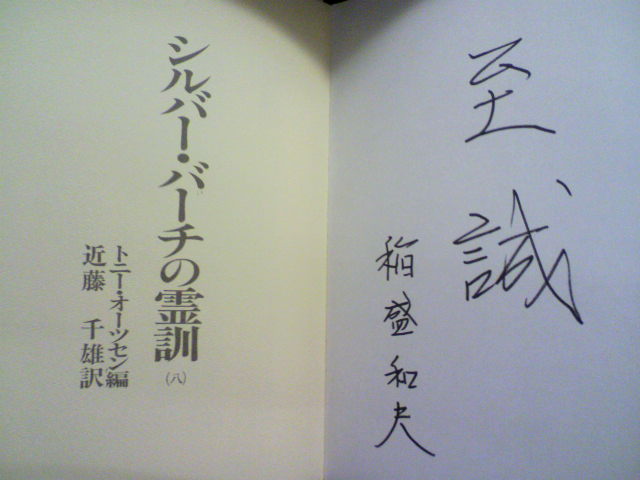 至誠
稲盛和夫
シルバー・バーチの霊訓(八)
トニー・オーツセン編
近藤 千雄訳